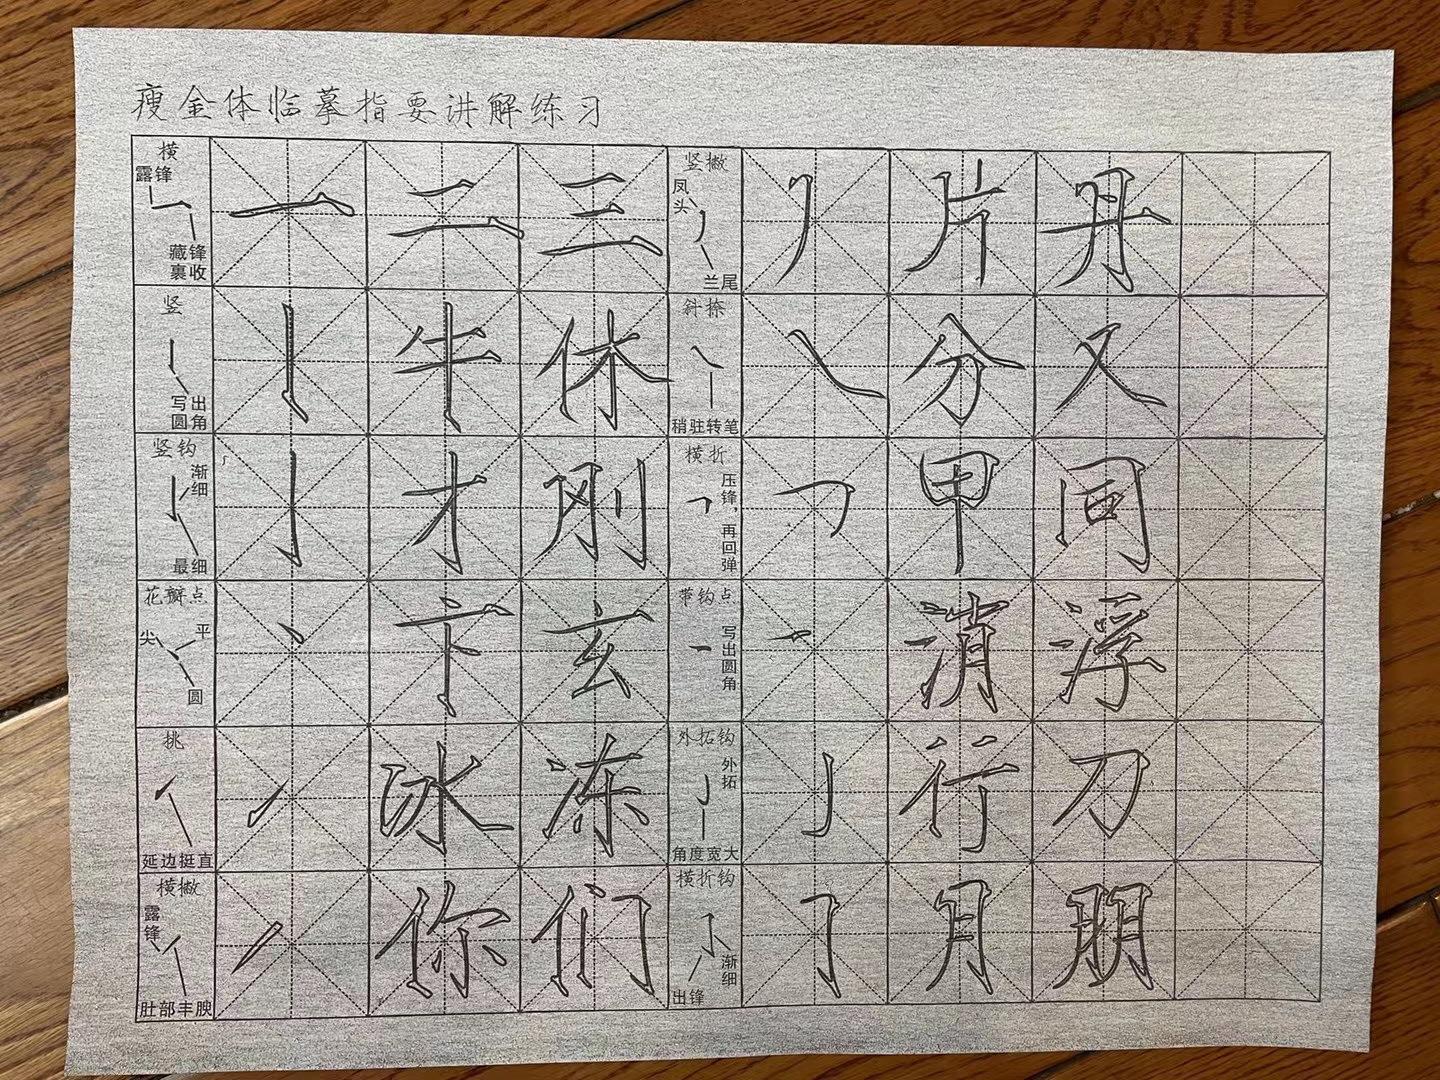 瘦金体临摹指要讲解练习
横
露锋
藏锋
裹收
一 二 三
竖撇
凤头
兰尾
丿 片 丹
竖
写出
圆角
丨 牛 休
斜捺
稍驻转笔
㇏ 分 又
竖钩
渐细
最细
亅 才 刚
横折
压锋，再回弹
𠃍 甲 同
花瓣点
尖
平
圆
丶 卞 玄
带钩点
写出圆角
消 浮
挑
延边挺直
㇀ 冰 冻
外拓钩
外拓
角度宽大
亅 行 刀
横撇
露锋
肚部丰腴
丿 你 们
横折钩
渐细
出锋
𠃌 月 朋